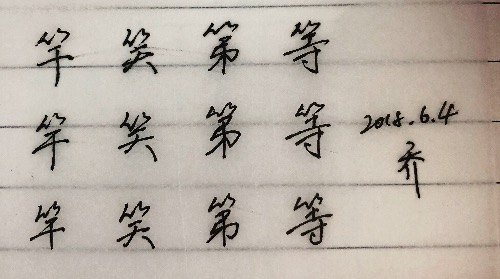 竿 笑 第 等
竿 笑 第 等
2018.6.4
乔
竿 笑 第 等